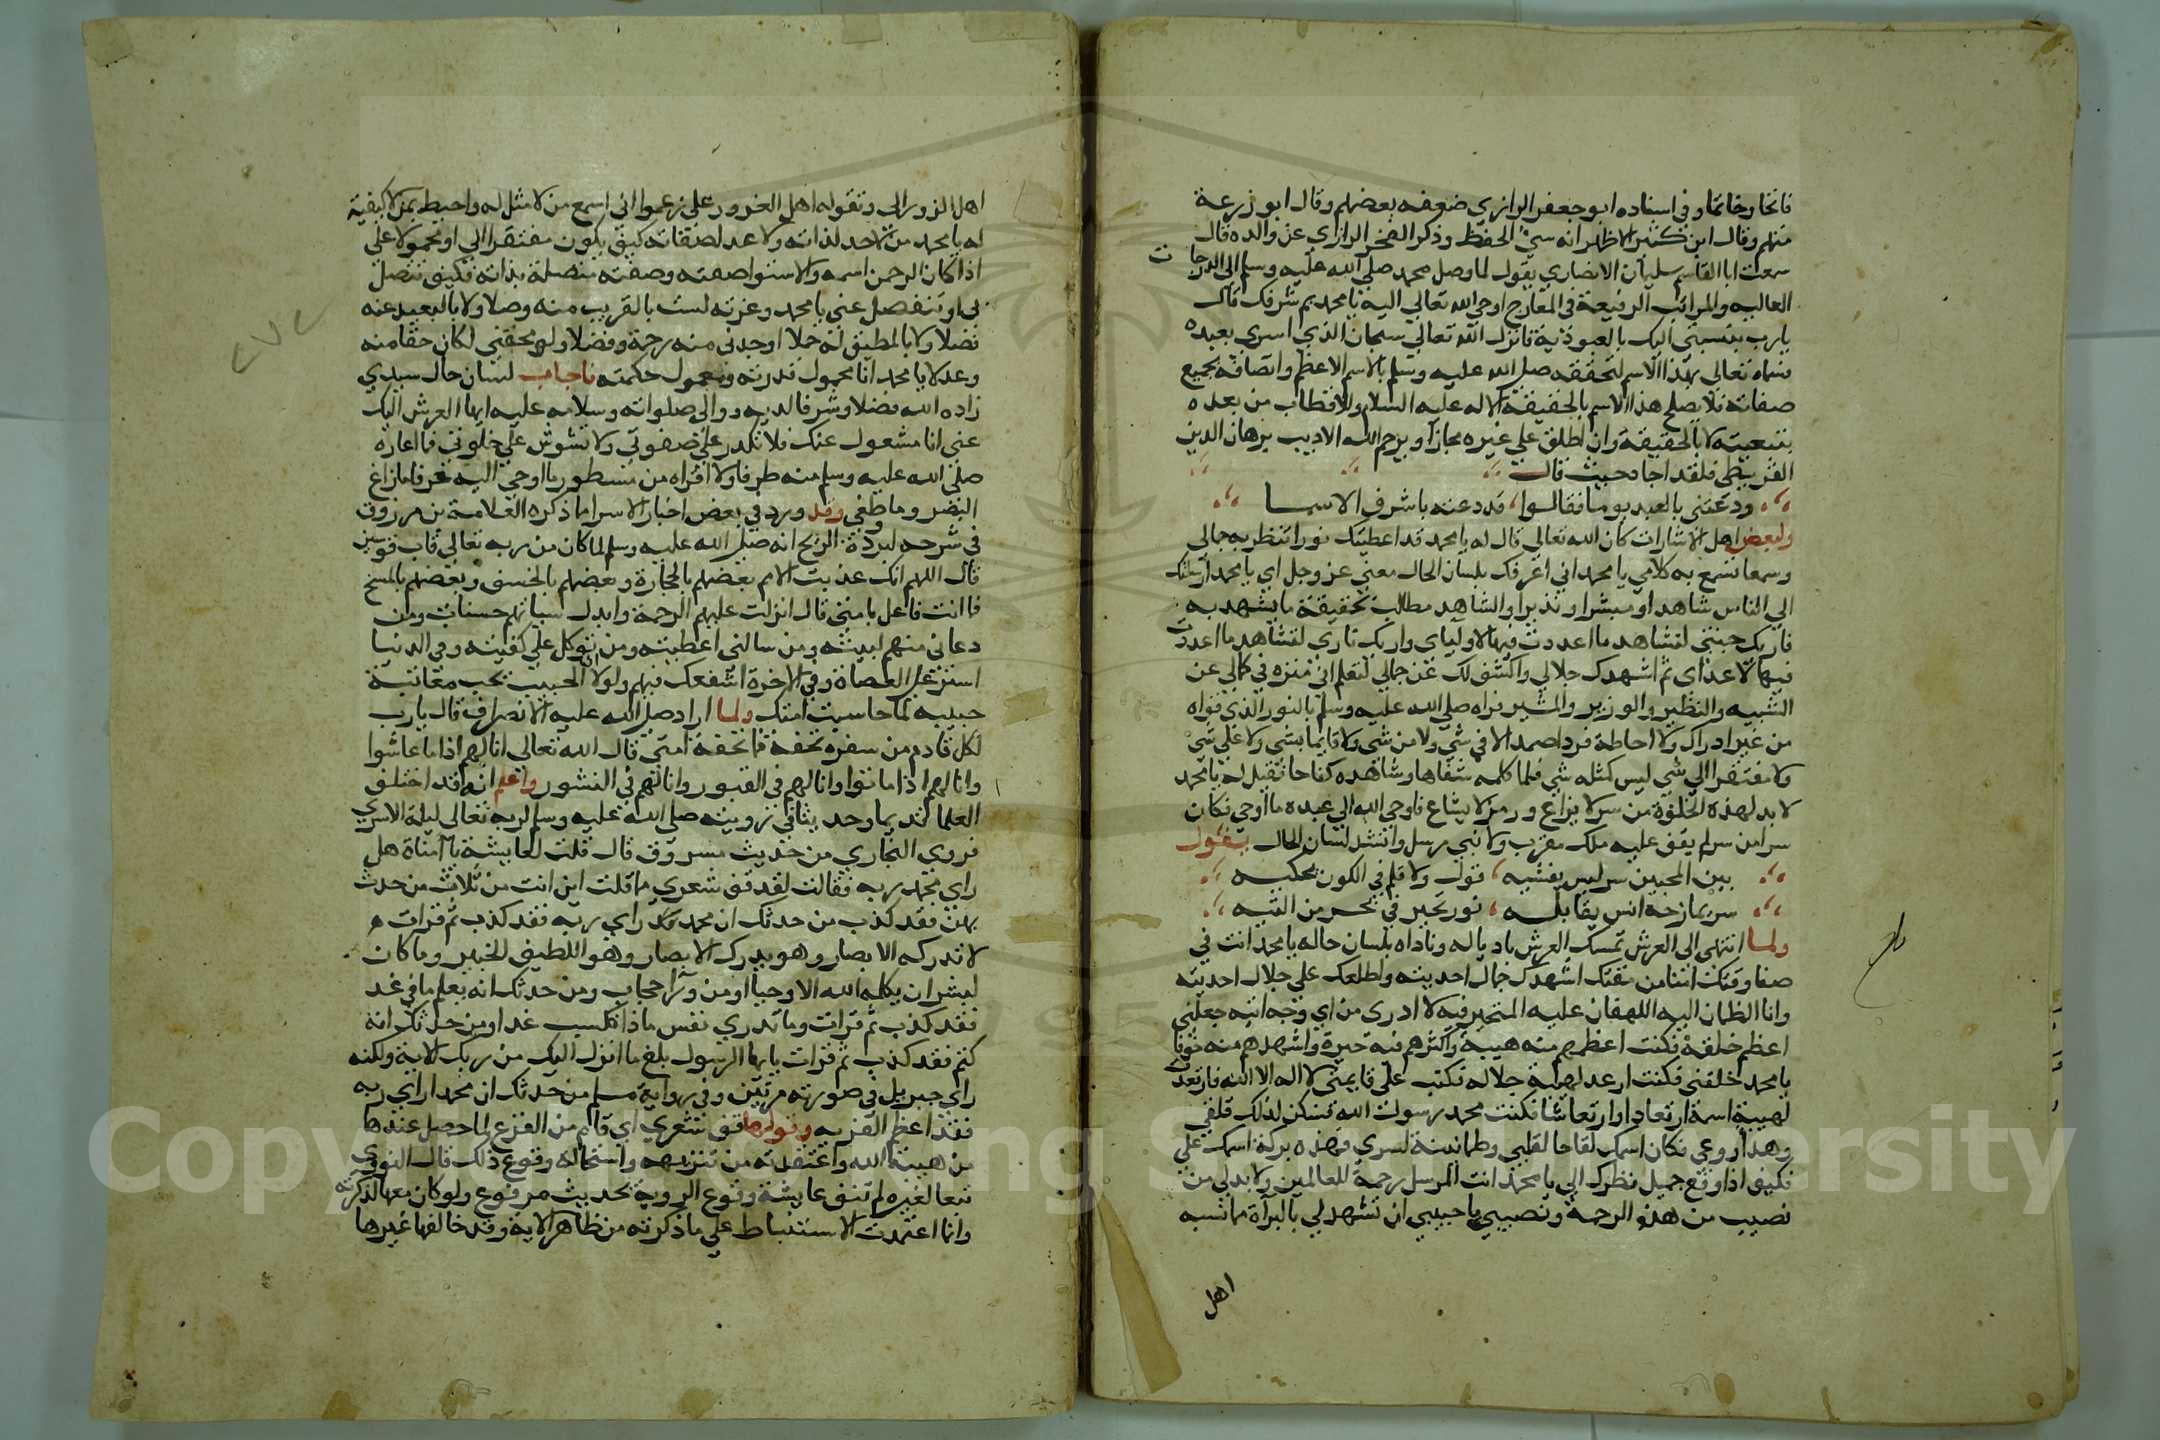 فاتحا وخاتما وفي اسناده ابو جعفر الرازي ضعفه بعضهم وقال ابو زرعة
متهم وقال ابن كثير الاظهر انه سيئ الحفظ وذكر الفخر الرازي عن والده قال
سمعت ابا القاسم سليمان الانصاري يقول لما وصل محمد صلي الله عليه وسلم الى الدرجات
العاليه والمراتب الرفيعة في المعارج اوحي الله تعالي اليه يا محمد بم شرفك قال
يارب بنسبتي اليك بالعبودية فانزل الله تعالي سبحان الذي اسري بعبده
فسماه تعالي بهذا الاسم لتحققه صلي الله عليه وسلم بالاسم الاعظم واتصافه بجميع
صفاته فلا يصلح هذا الاسم بالحقيقة الا له عليه السلام وللاقطاب من بعده
بتبعيته لا بالحقيقة وان اطلق علي غيره مجازا ويرحم الله الاديب برهان الدين
القيريطي فلقد اجاد حيث قال
ودعتني بالعبد يوما فقالوا قد دعته باشرف الاسما
ولبعض اهل الاشارات كان الله تعالي قال له يا محمد قد اعطيتك نورا تنظر به جمالي
وسمعا تسمع به كلامي يا محمد اني اعرفك بلسان الحال معني عز وجل اي يا محمد ارسلتك
الي الناس شاهدا ومبشرا ونذيرا والشاهد مطالب بحقيقة ما يشهد به
فاريك جنتي لتشاهد ما اعددت فيها لاوليائي واريك ناري لتشاهد ما اعددت
فيها لاعدائي ثم اشهدك جلالي واكشف لك عن جمالي لتعلم اني منزه في كمالي عن
الشبيه والنظير والوزير والمشير فراه صلي الله عليه وسلم بالنور الذي قواه
من غير ادراك ولا احاطة فردا صمدا لا في شي ولا من شي ولا قايما بشي ولا علي شي
ولا مفتقرا الي شي ليس كمثله شي فلما كلمه شفاها وشاهده كفاحا فقيل له يا محمد
لا بد لهذه الخلوة من سر لا يذاع ورمز لا يشاع فاوحي الله الي عبده ما اوحي فكان
سرا من سر لم يقف عليه ملك مقرب ولا نبي مرسل وانشد لسان الحال يقول
بين المحبين سر ليس يفشيه قول ولا قلم في الكون يحكيه
سر يمازجه انس يقابله نور تحير في بحر من التيه
ولما انتهي الي العرش تمسك العرش باذياله وناداه بلسان حاله يا محمد انت في
صفا وقتك امنا من مقتك اشهدك جمال احديته واطلعك علي جلال احديته
وانا الظمان اليه اللهفان عليه المتحير فيه لا ادري من اي وجه اتيه جعلني
اعظم خلقه فكنت اعظمهم منه هيبة واكثرهم فيه حيرة واشهدهم منه خوفا
يا محمد خلقني فكنت ارعد لهيبة جلاله فكتب علي قايمتي لا اله الا الله فارتعدت
لهيبة اسمه ارتعادا وارتعاشا فكتب محمد رسول الله فسكن لذلك قلقي
وهدا روعي فكان اسمك لقاحا لقلبي وطمانينة لسري فهذه بركة اسمك علي
فكيف اذا وقع جميل نظرك الي يا محمد انت المرسل رحمة للعالمين ولا بد لي من
نصيب من هذه الرحمة ونصيبي يا حبيبي ان تشهد لي بالبراة مما نسبه
اهل
اهل الزور الي وتقوله اهل الغرور علي زعموا اني اسع من لا مثل له واحيط بمن لا كيفية
له يا محمد من لا حد لذاته ولا عد لصفاته كيف يكون مفتقرا الي او محمولا علي
اذا كان الرحمن اسمه والاستوا صفته وصفته متصلة بذاته فكيف تتصل
لي او تنفصل عني يا محمد وعزته لست بالقريب منه وصلا ولا بالبعيد عنه
فصلا ولا بالمطيق له حملا اوجدني منه رحمة وفضلا ولو محقني لكان حقا منه
وعدلا يا محمد انا محمول قدرته ومعمول حكمته فاجاب لسان حال سيدي
زاده الله فضلا وشرفا لديه ووالي صلواته وسلامه عليه ايها العرش اليك
عني انا مشغول عنك فلا تكدر علي صفوتي ولا تشوش علي خلوتي فما اعاره
صلي الله عليه وسلم منه طرفا ولا اقراه من مسطور ما اوحي اليه حرفا ما زاغ
البصر وما طغي وقد ورد في بعض اخبار الاسرا ما ذكره العلامة بن مرزوق
في شرحه لبردة المديح انه صلي الله عليه وسلم لما كان من ربه تعالي قاب قوسين
قال اللهم انك عذبت الامم بعضهم بالحجارة وبعضهم بالخسف وبعضهم بالمسخ
فما انت فاعل بامتي قال انزلت عليهم الرحمة وابدل سياتهم حسنات ومن
دعاني منهم لبيته ومن سالني اعطيته ومن توكل علي كفيته وفي الدنيا
استر علي العصاة وفي الاخرة اشفعك فيهم ولولا ان الحبيب يحب معاتبة
حبيبه لما حاسبت امتك ولما اراد صلي الله عليه الانصراف قال يارب
لكل قادم من سفره تحفة فما تحفة امتي قال الله تعالي انا لهم اذا ما عاشوا
وانا لهم اذا ماتوا وانا لهم في القبور وانا لهم في النشور واعلم انه قد اختلف
العلما قديما وحديثا في رويته صلي الله عليه وسلم لربه تعالي ليلة الاسري
فروي البخاري من حديث مسروق قال قلت لعايشة يا امتاه هل
راي محمد ربه فقالت لقد قف شعري مما قلت اين انت من ثلاث من حدثك
بهن فقد كذب من حدثك ان محمدا راي ربه فقد كذب ثم قرات
لا تدركه الابصار وهو يدرك الابصار وهو اللطيف الخبير وما كان
لبشر ان يكلمه الله الا وحيا او من ورآ حجاب ومن حدثك انه يعلم ما في غد
فقد كذب ثم قرات وما تدري نفس ماذا تكسب غدا ومن حدثك انه
كتم فقد كذب ثم قرات يا ايها الرسول بلغ ما انزل اليك من ربك الاية ولكنه
راي جبريل في صورته مرتين وفي رواية مسلم من حدثك ان محمدا راي ربه
فقد اعظم الفريه وقولها قف شعري اي قام من الفزع لما حصل عندها
من هيبة الله واعتقدته من تنزيهه واستحالة وقوع ذلك قال النووي
تبعا لغيره لم تنف عايشة وقوع الروية بحديث مرفوع ولو كان معها لذكرته
وانما اعتمدت الاستنباط علي ما ذكرته من ظاهر الاية وقد خالفها غيرها
Copy King S University